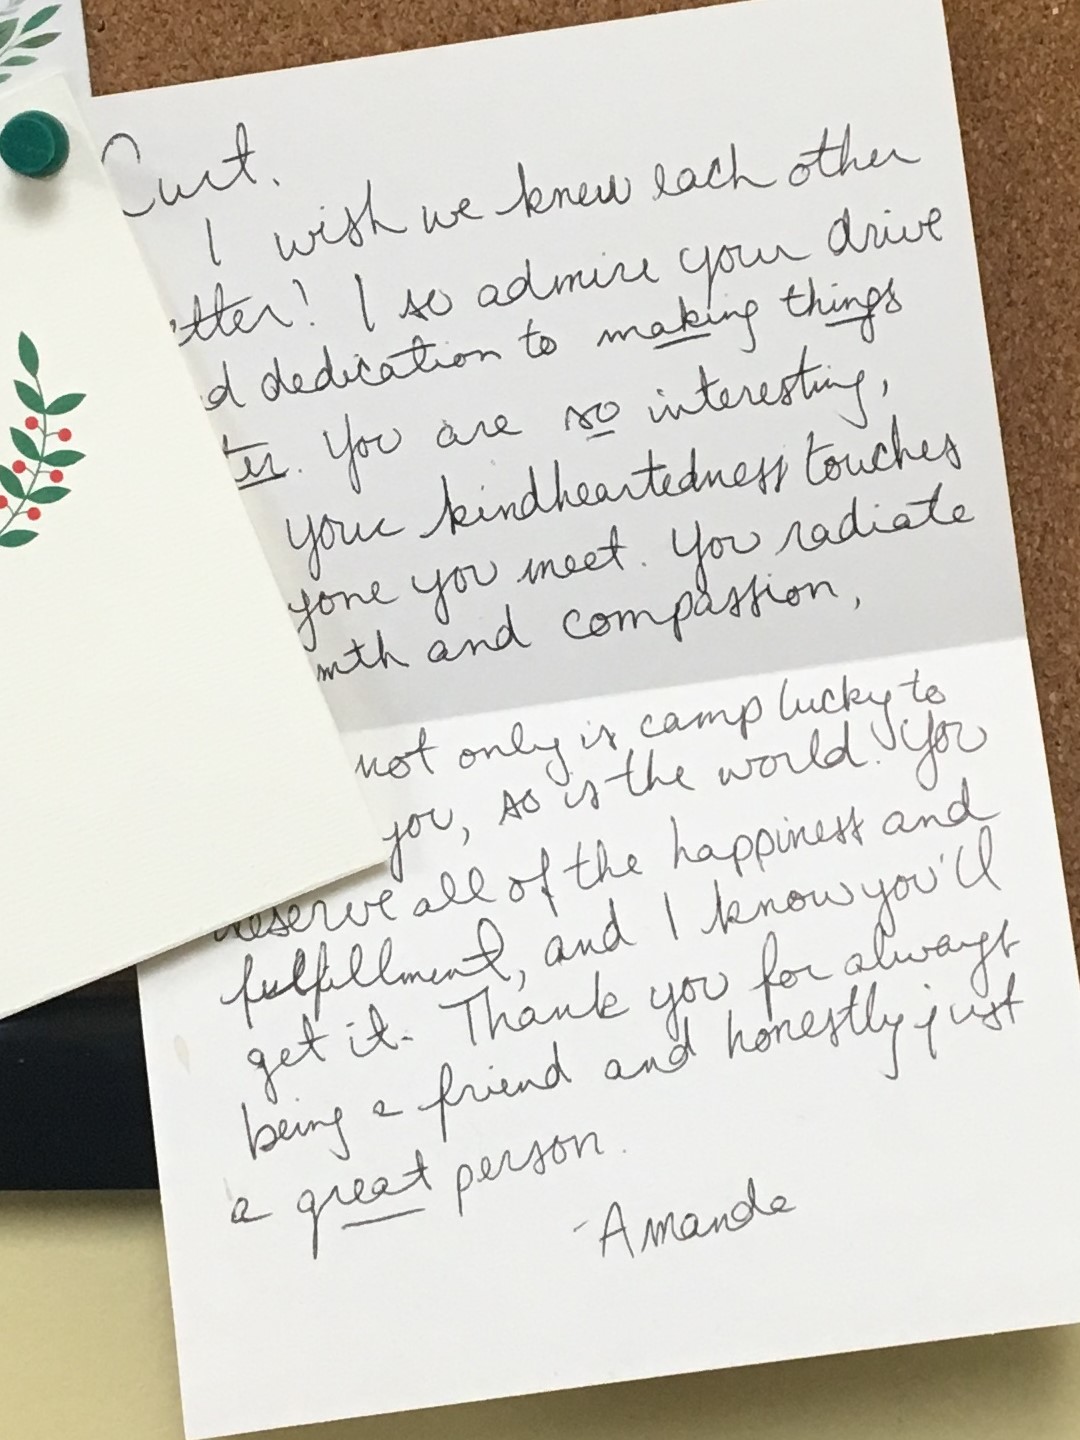 Curt,
I wish we knew each other
etter! I so admire your drive
d dedication to making things
ter. You are so interesting,
your kindheartedness touches
yone you meet. You radiate
mth and compassion,
not only is camp lucky to
you, so is the world. You
deserve all of the happiness and
fulfillment, and I know you'll
get it. Thank you for always
being a friend and honestly just
a great person.
-Amanda